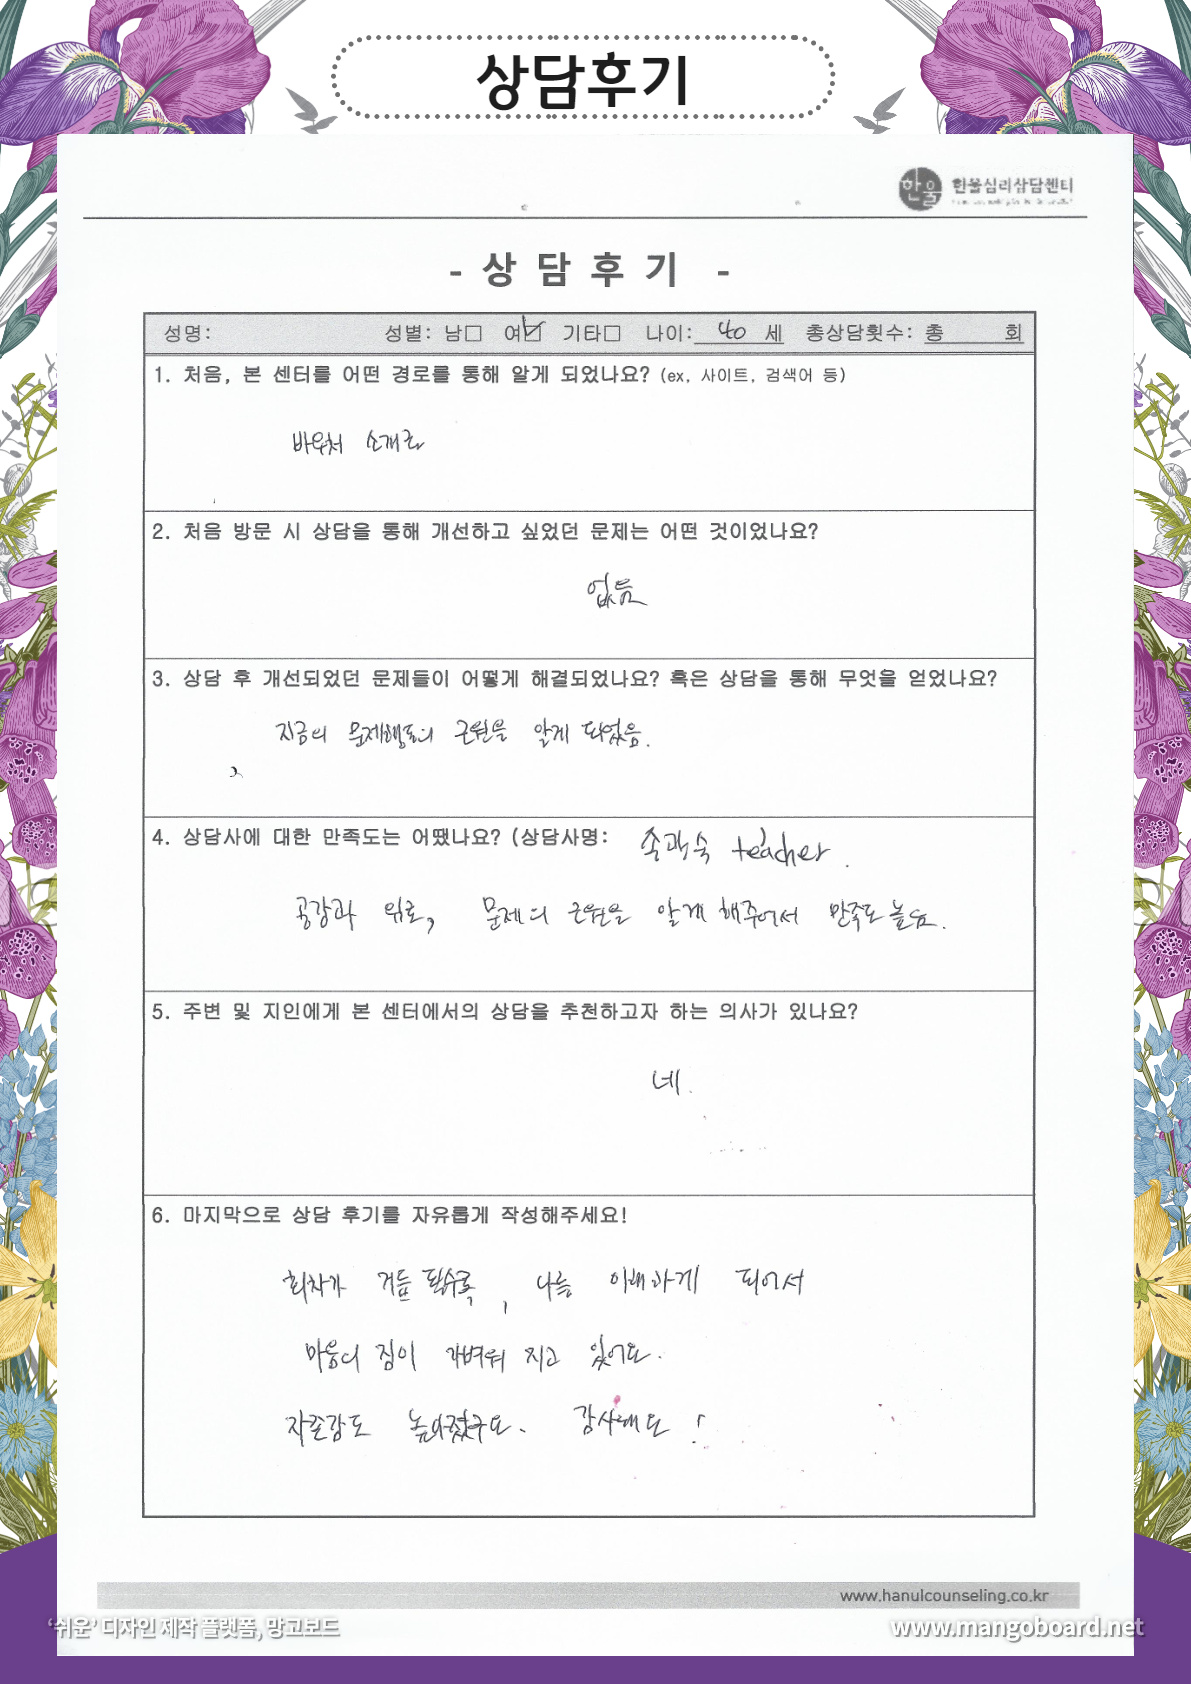 상담후기
한울 한울심리상담센터
- 상 담 후 기 -
성명: 성별: 남□ 여☑ 기타□ 나이: 40 세 총상담횟수: 총 회
1. 처음, 본 센터를 어떤 경로를 통해 알게 되었나요? (ex, 사이트, 검색어 등)
바우처 소개로
2. 처음 방문 시 상담을 통해 개선하고 싶었던 문제는 어떤 것이었나요?
없음
3. 상담 후 개선되었던 문제들이 어떻게 해결되었나요? 혹은 상담을 통해 무엇을 얻었나요?
지금의 문제행동의 근원을 알게 되었음.
4. 상담사에 대한 만족도는 어땠나요? (상담사명: teacher.
공감과 위로, 문제의 근원을 알게 해주어서 만족도 높음.
5. 주변 및 지인에게 본 센터에서의 상담을 추천하고자 하는 의사가 있나요?
네.
6. 마지막으로 상담 후기를 자유롭게 작성해주세요!
회차가 거듭 될수록, 나를 이해하게 되어서
마음의 짐이 가벼워 지고 있어요.
자존감도 높아졌구요. 감사해요!
www.hanulcounseling.co.kr
‘쉬운’ 디자인 제작 플랫폼, 망고보드
www.mangoboard.net